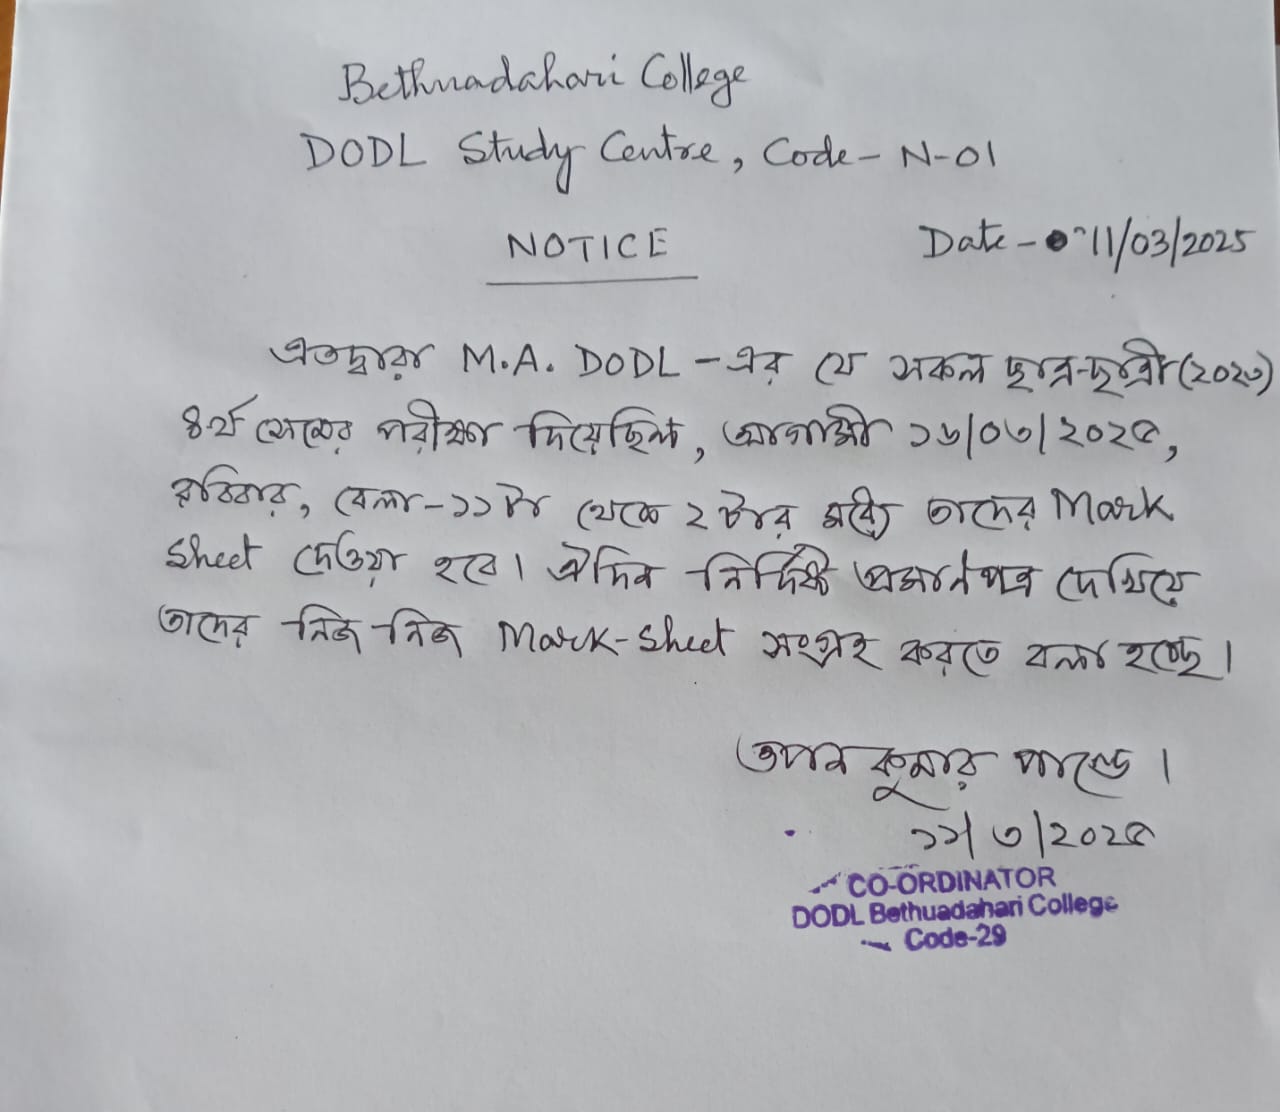 Bethuadahari College
DODL Study Centre, Code- N-01
NOTICE
Date - 11/03/2025
এতদ্বারা M.A. DODL - এর যে সকল ছাত্র-ছাত্রী (২০২৩)
৪র্থ সেমের পরীক্ষা দিয়েছিল, আগামী ১৬/০৩/২০২৫,
রবিবার, বেলা-১১টা থেকে ২টার মধ্যে তাদের Mark
Sheet দেওয়া হবে। ঐদিন নির্দিষ্ট প্রমাণপত্র দেখিয়ে
তাদের নিজ নিজ Mark-Sheet সংগ্রহ করতে বলা হচ্ছে।
তপন কুমার পান্ডে।
১১/৩/২০২৫
CO-ORDINATOR
DODL Bethuadahari College
Code-29